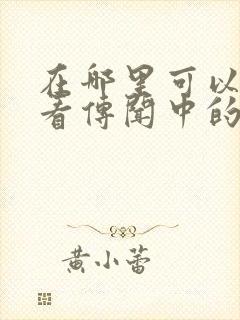 在哪里可以
看傳聞中的
黄小蕾